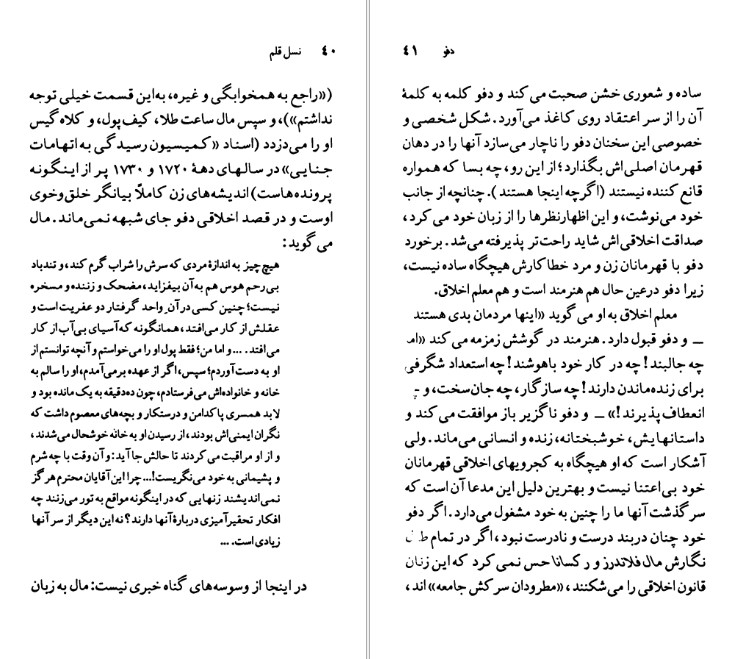 ۴۰ نسل قلم
(«راجع به همخوابگی و غیره، به‌این قسمت خیلی توجه
نداشتم»)، و سپس مال ساعت طلا، کیف‌پول، و کلاه‌گیس
او را می‌دزدد (اسناد «کمیسیون رسیدگی به اتهامات
جنایی» در سالهای دههٔ ۱۷۲۰ و ۱۷۳۰ پر از اینگونه
پرونده‌هاست) اندیشه‌های زن کاملاً بیانگر خلق‌وخوی
اوست و در قصد اخلاقی دفو جای شبهه نمی‌ماند. مال
می‌گوید:
هیچ‌چیز به اندازهٔ مردی که سرش را شراب گرم کند، و تندباد
بی‌رحم هوس هم به‌آن بیفزاید، مضحک و زننده و مسخره
نیست؛ چنین کسی در آن ِ واحد گرفتار دو عفریت است و
عقلش از کار می‌افتد، همانگونه که آسیای بی‌آب از کار
می‌افتد. ... و اما من؛ فقط پول او را می‌خواستم و آنچه توانستم از
او به دست‌آوردم؛ سپس، اگر از عهده برمی‌آمدم، او را سالم به
خانه و خانواده‌اش می‌فرستادم، چون ده‌دقیقه به یک مانده بود و
لابد همسری پاکدامن و درستکار و بچه‌های معصوم داشت که
نگران ایمنی‌اش بودند، از رسیدن او به خانه خوشحال می‌شدند،
و از او مراقبت می‌کردند تا حالش جا آید: و آن وقت با چه شرم
و پشیمانی به خود می‌نگریست!... چرا این آقایان محترم هرگز
نمی‌اندیشند زنهایی که در اینگونه مواقع به تور می‌زنند چه
افکار تحقیرآمیزی دربارهٔ آنها دارند؟ نه این دیگر از سر آنها
زیادی است. ...
در اینجا از وسوسه‌های گناه خبری نیست: مال به زبان
دفو ۴۱
ساده و شعوری خشن صحبت می‌کند و دفو کلمه به کلمهٔ
آن را از سر اعتقاد روی کاغذ می‌آورد. شکل شخصی و
خصوصی این سخنان دفو را ناچار می‌سازد آنها را در دهان
قهرمان اصلی‌اش بگذارد؛ از این رو، چه بسا که همواره
قانع کننده نیستند (اگرچه اینجا هستند). چنانچه از جانب
خود می‌نوشت، و این اظهارنظرها را از زبان خود می‌کرد،
صداقت اخلاقی‌اش شاید راحت‌تر پذیرفته می‌شد. برخورد
دفو با قهرمانان زن و مرد خطاکارش هیچگاه ساده نیست،
زیرا دفو درعین حال هم هنرمند است و هم معلم اخلاق.
معلم اخلاق به او می‌گوید «اینها مردمان بدی هستند
ــ و دفو قبول دارد. هنرمند در گوشش زمزمه می‌کند «اما
چه جالبند! چه در کار خود باهوشند! چه استعداد شگرفی
برای زنده‌ماندن دارند! چه سازگار، چه جان‌سخت، و چه
انعطاف‌پذیرند!» ــ و دفو ناگزیر باز موافقت می‌کند و
داستانهایش، خوشبختانه، زنده و انسانی می‌ماند. ولی
آشکار است که او هیچگاه به کجرویهای اخلاقی قهرمانان
خود بی‌اعتنا نیست و بهترین دلیل این مدعا آن است که
سرگذشت آنها ما را چنین به خود مشغول می‌دارد. اگر دفو
خود چنان دربند درست و نادرست نبود، اگر در تمام طول
نگارش مال فلاندرز و رکسانا حس نمی‌کرد که این زنان
قانون اخلاقی را می‌شکنند، «مطرودان سرکش جامعه» اند،